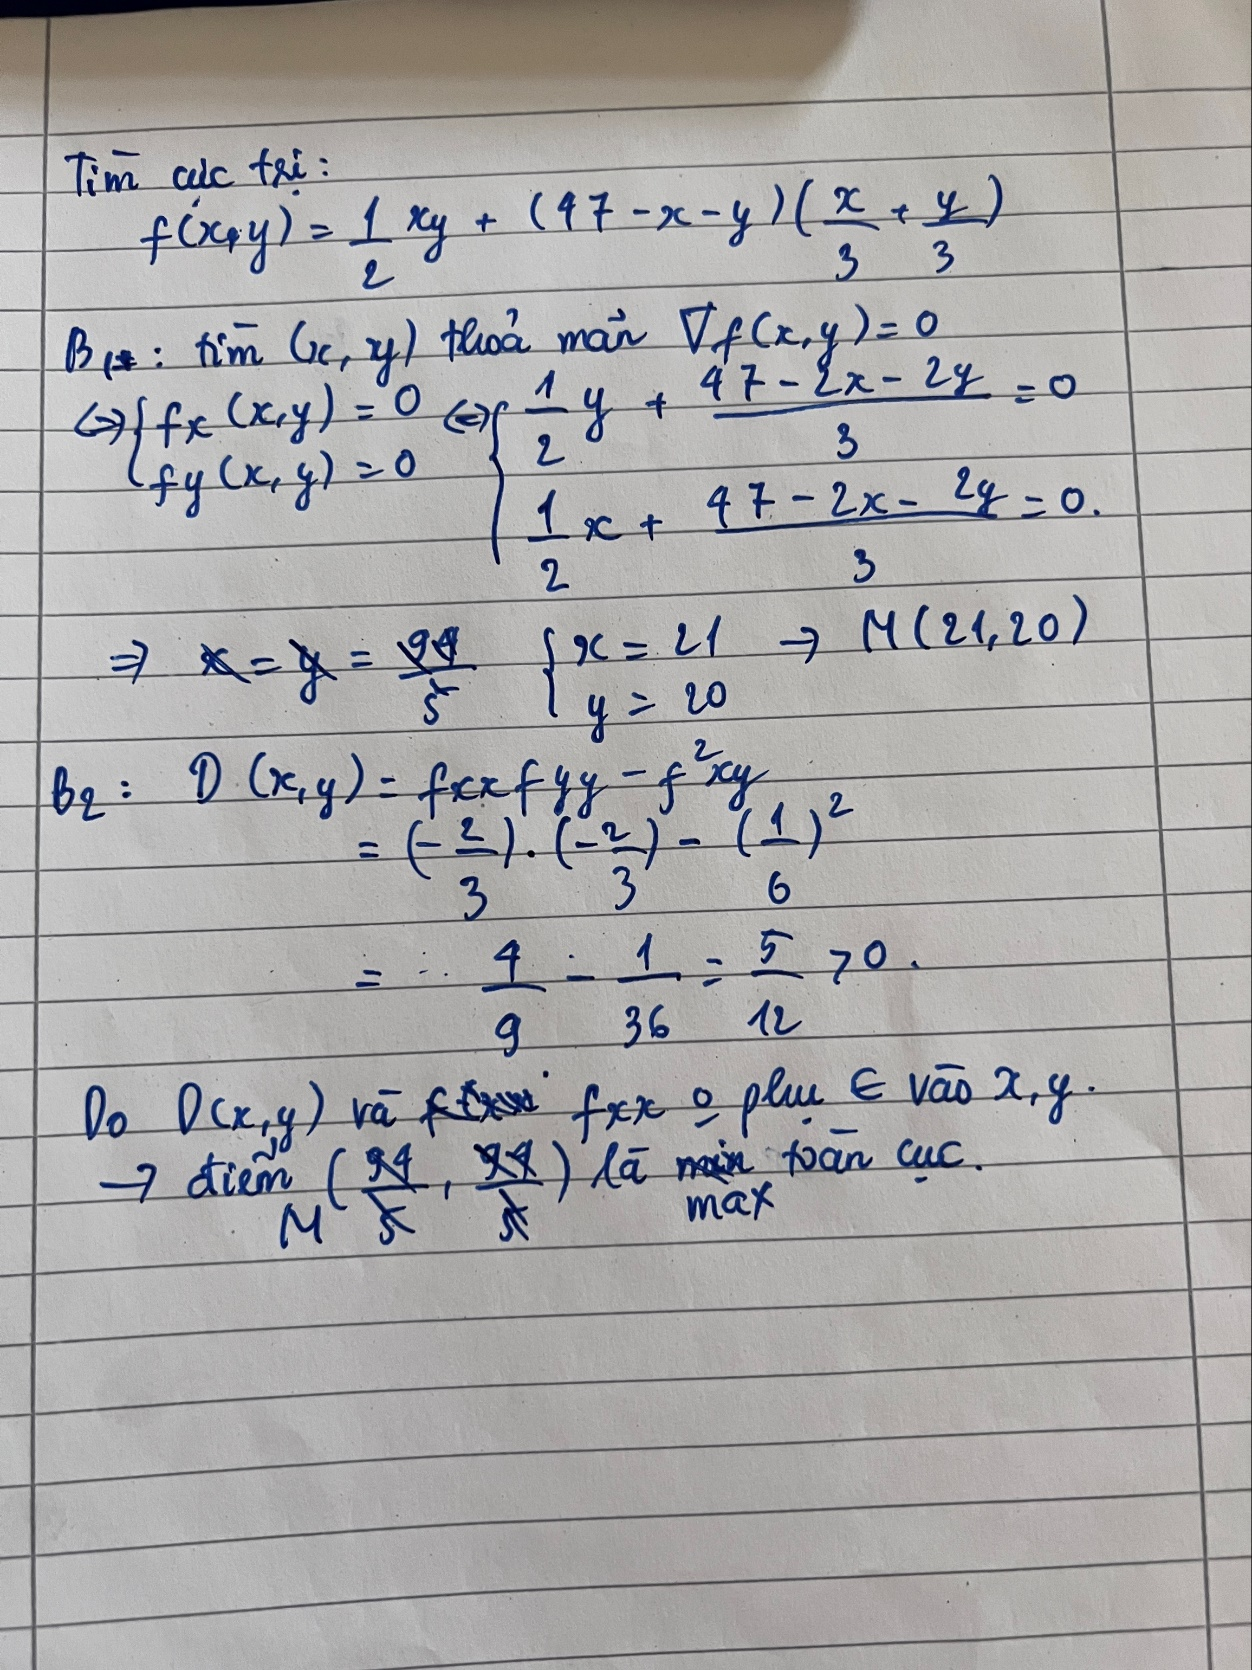 Tìm cực trị:
f(x,y) = 1/2 xy + (47 - x - y)(x/3 + y/3)
B1: tìm (x, y) thoả mãn ∇f(x,y) = 0
⇔ { fx(x,y) = 0 ⇔ { 1/2 y + (47 - 2x - 2y)/3 = 0
fy(x,y) = 0 1/2 x + (47 - 2x - 2y)/3 = 0.
⇒ x = y = 94/5 { x = 21 → M(21,20)
y = 20
B2: D(x,y) = fxx fyy - f²xy
= (-2/3).(-2/3) - (1/6)²
= 4/9 - 1/36 = 5/12 > 0.
Do D(x,y) và fxx o phụ ∈ vào x, y.
→ điểm M (94/5, 94/5) là min toàn cục.
max